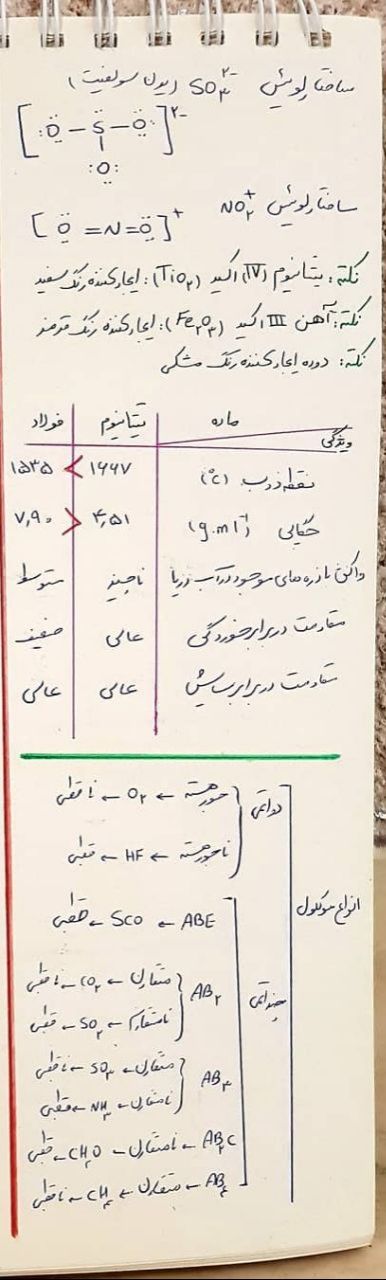 ساختار لوئیس SO₃²⁻ (یون سولفیت)
[:Ö – S̈ – Ö:]²⁻
|
:Ö:
ساختار لوئیس NO₂⁺
[Ö = N = Ö]⁺
نکته: تیتانیوم (IV) اکسید (TiO₂): ایجاد کننده رنگ سفید
نکته: آهن III اکسید (Fe₂O₃): ایجاد کننده رنگ قرمز
نکته: دوده ایجاد کننده رنگ مشکی
ماده تیتانیوم فولاد
ویژگی
نقطه ذوب (°C) ۱۶۶۷ > ۱۵۳۵
چگالی (g.ml⁻¹) ۴,۵۱ < ۷,۹۰
واکنش با ذره های موجود در آب دریا ناچیز متوسط
مقاومت در برابر خوردگی عالی ضعیف
مقاومت در برابر سایش عالی عالی
انواع مولکول
دو اتمی
جور هسته ← O₂ ← ناقطبی
ناجور هسته ← HF ← قطبی
چند اتمی
ABE ← SCO ← قطبی
AB₂
متقارن ← CO₂ ← ناقطبی
نامتقارن ← SO₂ ← قطبی
AB₃
متقارن ← SO₃ ← ناقطبی
نامتقارن ← NH₃ ← قطبی
AB₂C ← نامتقارن ← CH₂O ← قطبی
AB₄ ← متقارن ← CH₄ ← ناقطبی